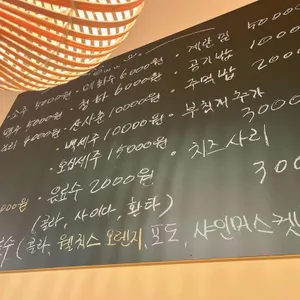 소주 5000원 · 매화수 6000원 · 계란찜 5000
맥주 5000원 · 청하 6000원 · 공기밥 1000
4000원 · 산사춘 10000원 · 주먹밥 2000
· 백세주 10000원 · 부침개 추가 3000
· 오십세주 15000원 · 치즈 사리 300
000원 · 음료수 2000원
(콜라, 사이다, 환타)
수 (콜라, 웰치스 오렌지, 포도, 샤인머스켓